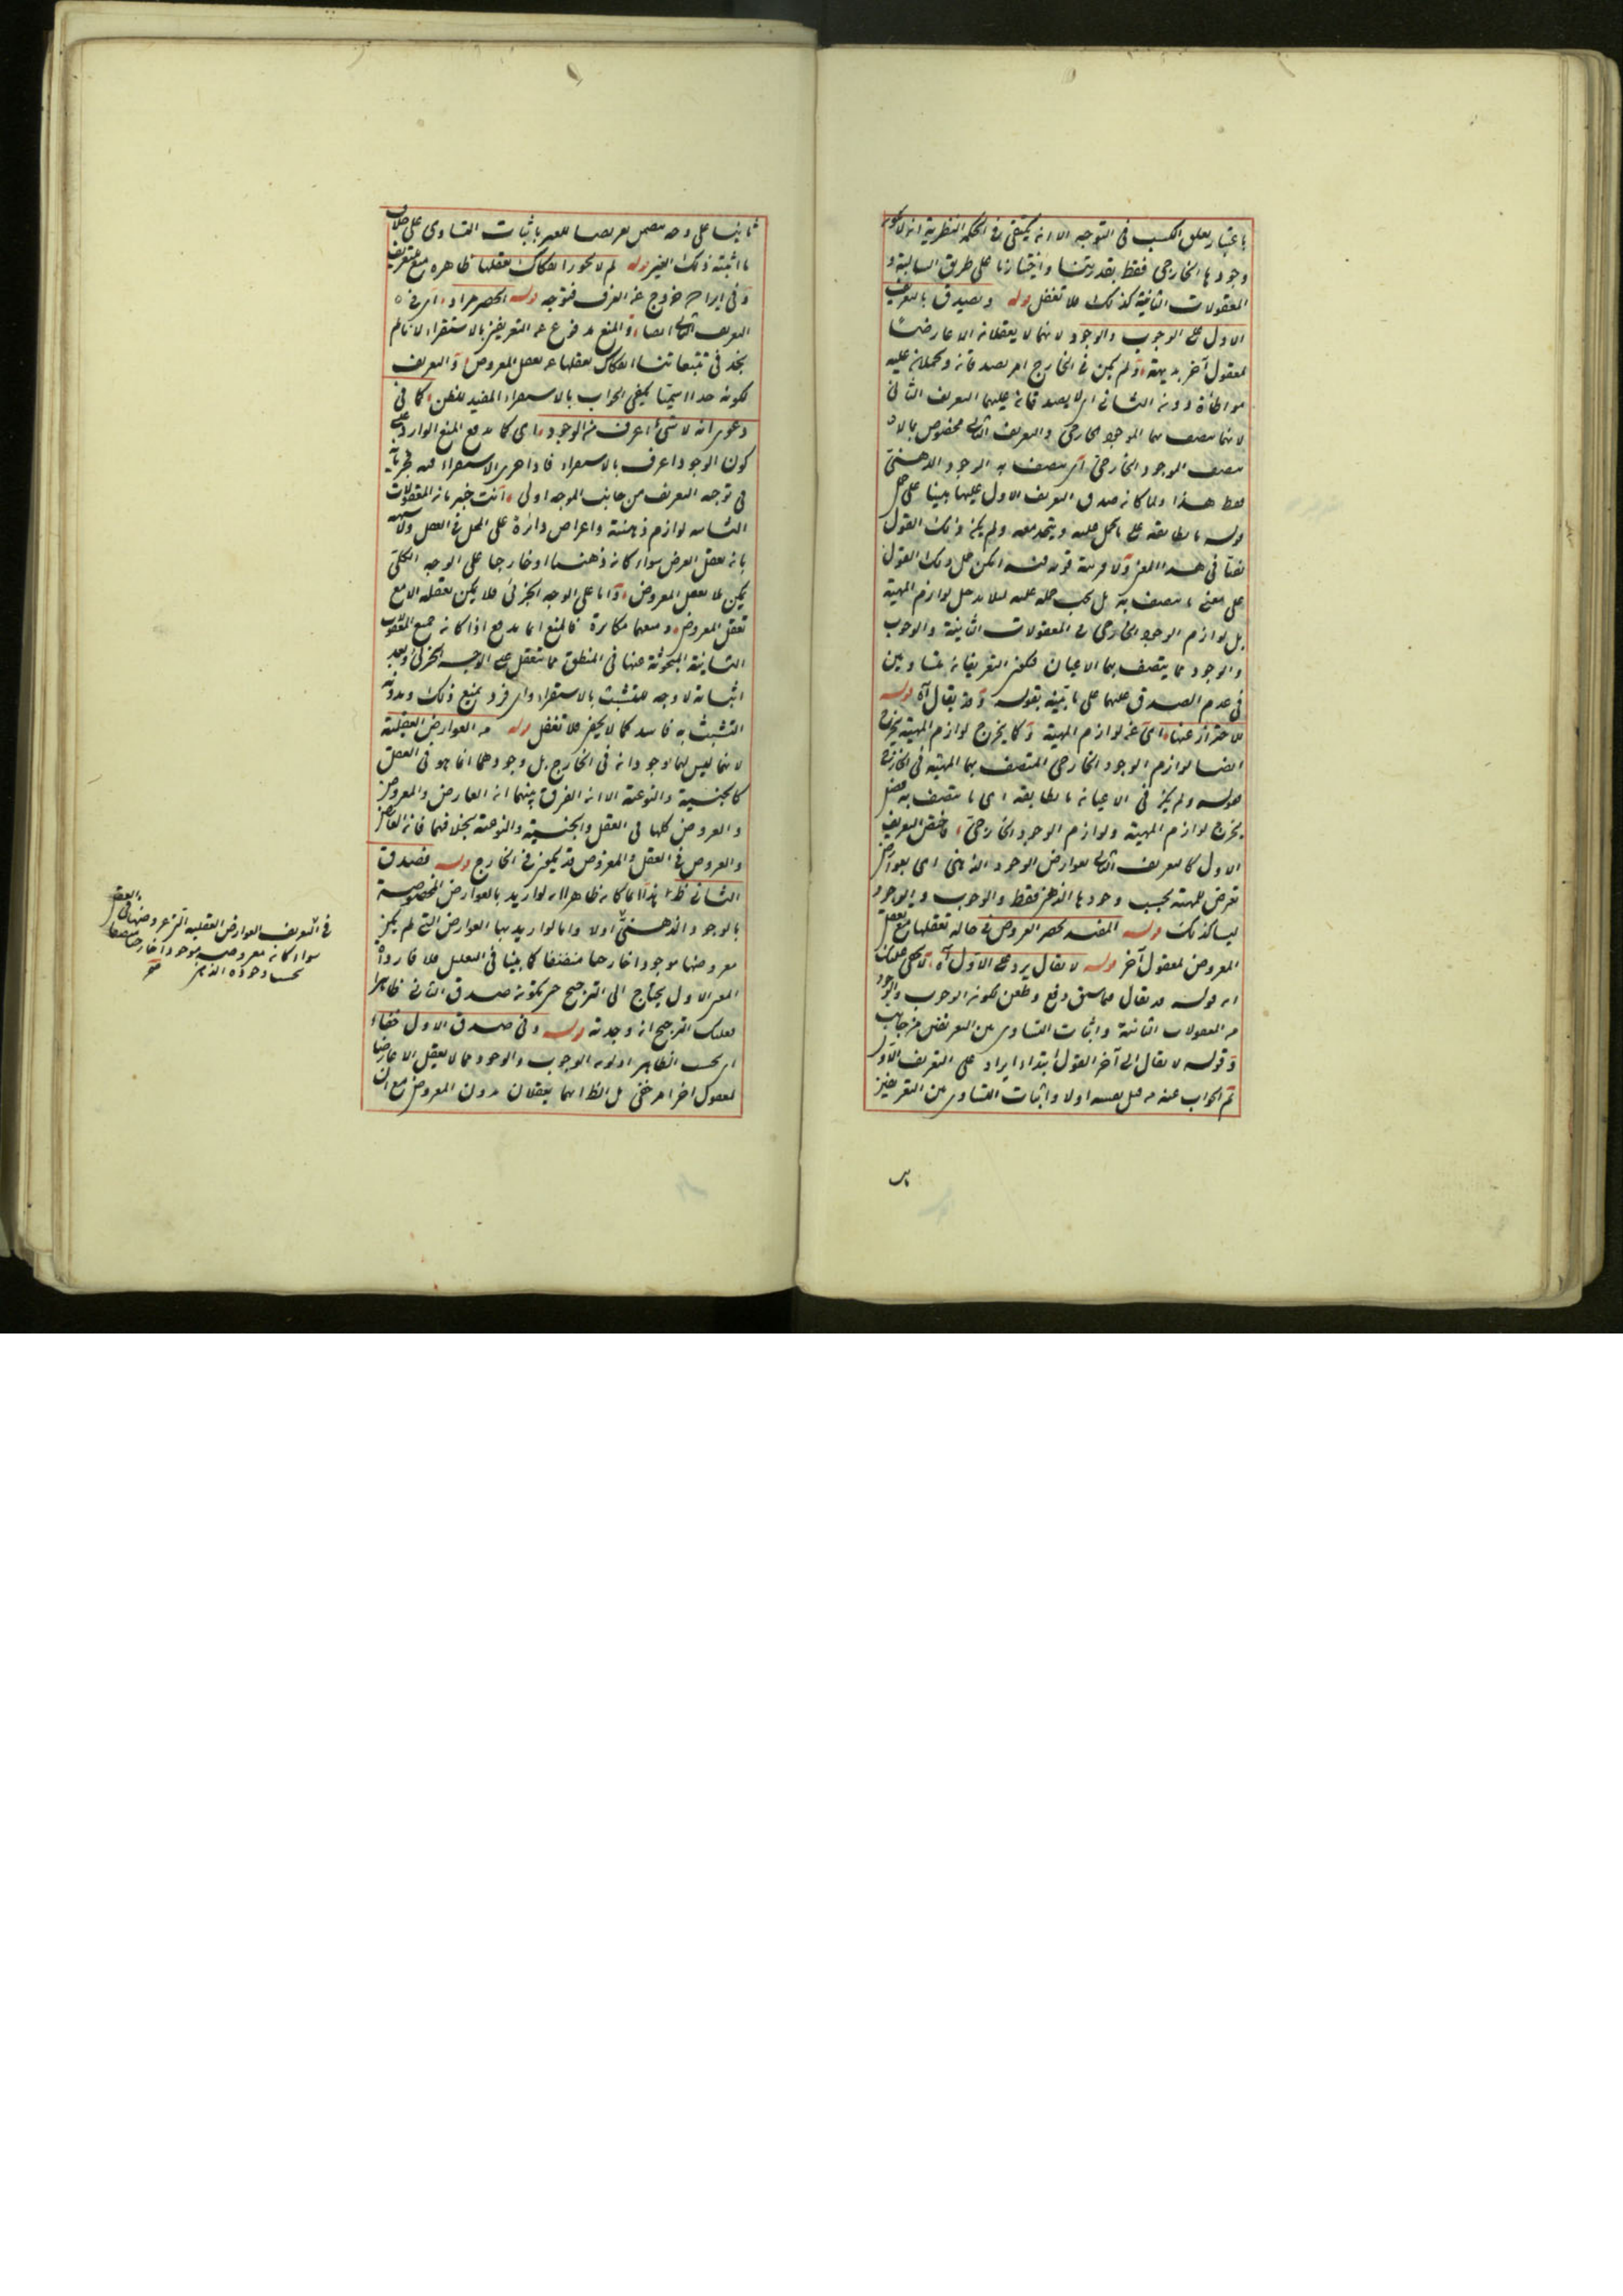 باعتبار تعلق الكسب فى التوجيه الا انه يكتفى فى الحكمة النظرية انه لا يكون
وجودها الخارجى فقط بقدرتنا واختيارنا على طريق السالبة و
المعقولات الثانية كذلك فلا تغفل قوله ويصدق بالتعريف
الاول على الوجوب والوجود لانهما لا يعقلان الا عارضًا
لمعقول آخر بديهة ولم يكن فى الخارج امر يصدقان ويحملان عليه
مواطأة دون الثانى اى لا يصدقان عليهما التعريف الثانى
لانهما يتصف بهما الموجود الخارجى والتعريف الثانى مخصوص بما لا
يتصف الموجود الخارجى اى يتصف به الوجود الذهنى
فقط هذا ولما كان صدق التعريف الاول عليهما مبنيا على حمل
قوله ما يطابقه على ما يحمل عليه ويتحد معه ولم يكن ذلك القول
نصا فى هذا المعنى ولا قرينة قوية فيه امكن حمل ذلك القول
على معنى ما يتصف به بل يجب حمله عليه لئلا يدخل لوازم المهية
بل لوازم الوجود الخارجى فى المعقولات الثانية والوجوب
والوجود مما يتصف بهما الاعيان فيكون التعريفان متساويين
فى عدم الصدق عليهما على ما بينه بقوله وقد يقال آه قوله
للاحتراز عنها اى عن لوازم المهية وكما يخرج لوازم المهية يخرج
ايضا لوازم الوجود الخارجى المتصف بها المهية فى الخارج
فقوله ولم يكن فى الاعيان ما يطابقه اى ما يتصف به فصل
يخرج لوازم المهية ولوازم الوجود الخارجى فاختص التعريف
الاول كالتعريف الثانى بعوارض الوجود الذهنى اى بعوارض
تعرض للمهية بحسب وجودها الذهنى فقط والوجوب والوجود
ليسا كذلك قوله المفيد لحصر العروض فى حالة تعقلها مع تعقل
المعروض لمعقول آخر قوله لا يقال يرد على الاول آه لا يخفى عليك
ان قوله قد يقال مما سبق دفع وطعن لكون الوجوب والوجود
من المعقولات الثانية واثبات التساوى بين التعريفين من جانب
وقوله لا يقال الى آخر القول ابتداء ايراد على التعريف الاول
ثم الجواب عنه من قبل نفسه اولا واثبات التساوى بين التعريفين
ثانيا على وجه يتضمن تعريضا للغير باثبات التساوى على خلاف
ما اثبته ذلك الغير قوله لم لا يجوز انفكاك تعقلها ظاهره منع لتعريف
وفى ايراد خروج عن العرف فتوجه قوله الحصر مراد اى فى
التعريف الثانى ايضا والمنع مدفوع عن التعريفين بالاستقراء لانا لم
نجد فى تتبعاتنا انفكاك تعقلها عن تعقل المعروض والتعريف
لكونه حدا اسميا يكفى الجواب بالاستقراء المفيد للظن كما فى
دعوى انه لا شىء اعرف من الوجود اى كما يدفع المنع الوارد على
كون الوجود اعرف بالاستقراء فاذا جرى الاستقراء فيه فجريانه
فى توجيه التعريف من جانب الموجه اولى وانت خبير بان المعقولات
الثانية لوازم ذهنية واعراض دائرة على المحل فى العقل ولا شبهة
بان تعقل العرض سواء كان ذهنيا او خارجيا على الوجه الكلى
يمكن بلا تعقل المعروض واما على الوجه الجزئى فلا يمكن تعقله الا مع
تعقل المعروض ومنعهما مكابرة فالمنع انما يدفع اذا كان جميع المعقولات
الثانية المبحوثة عنها فى المنطق مما يتعقل على الوجه الجزئى وبعد
اثباته لا وجه للتشبث بالاستقراء واى فرد يمنع ذلك وبدونه
التشبث به فاسد كما لا يخفى فلا تغفل قوله من العوارض العقلية
لانهما ليس لهما وجودان فى الخارج بل وجودهما انما هو فى العقل
كالجنسية والنوعية الا ان الفرق بينهما ان العارض والمعروض
والعروض كلها فى العقل والجنسية والنوعية بخلافهما فان العارض
والعروض فى العقل والمعروض قد يكون فى الخارج قوله فصدق
الثانى ظ هذا انما كان ظاهرا ان لو اريد بالعوارض المخصوصة
بالوجود الذهنى اولا واما لو اريد بها العوارض التى لم يكن
معروضها موجودا خارجيا متصفا كما بينا فى التعليل فلا فارد
المعنى الاول يحتاج الى الترجيح حتى يكون صدق الثانى ظاهرا
فعليك الترجيح ان وجدته قوله وفى صدق الاول خفاء
اى بحسب الظاهر اذ كون الوجوب والوجود مما لا يعقل الا عارضا
لمعقول آخر امر خفى بل الظ انهما يعقلان بدون المعروض مع ان
فى التعريف العوارض العقلية التى عروضها فى العقل
سواء كان معروضه موجودا خارجيا متصفا
بحسب وجوده الذهنى